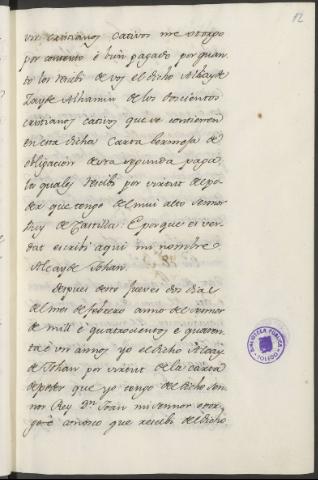 12
un cristianos cativos me otorgo
por contento é bien pagado por quan
to los recibi de vos el dicho Alcayde
Zayde Alhamin de los doscientos
cristianos cativos que se contienen
en esta dicha Carta bermeja de
obligacion de esta segunda paga
los quales recibi por virtut de po
der que tengo del mui alto Señor
Rey de Castilla: E porque es ver
dat escribi aqui mi nombre
Alcayde Johan.
despues desto Jueves dos dias
del mes de febrero anno del Señor
de mill é quatrocientos é quaren
ta é un annos yo el dicho Alcay
de Johan por virtut de la carta
de poder que yo tengo del dicho Sen
nor Rey Dn Joan mi Sennor otor
go é conosco que recibi del dicho
BIBLIOTECA PUBLICA
TOLEDO